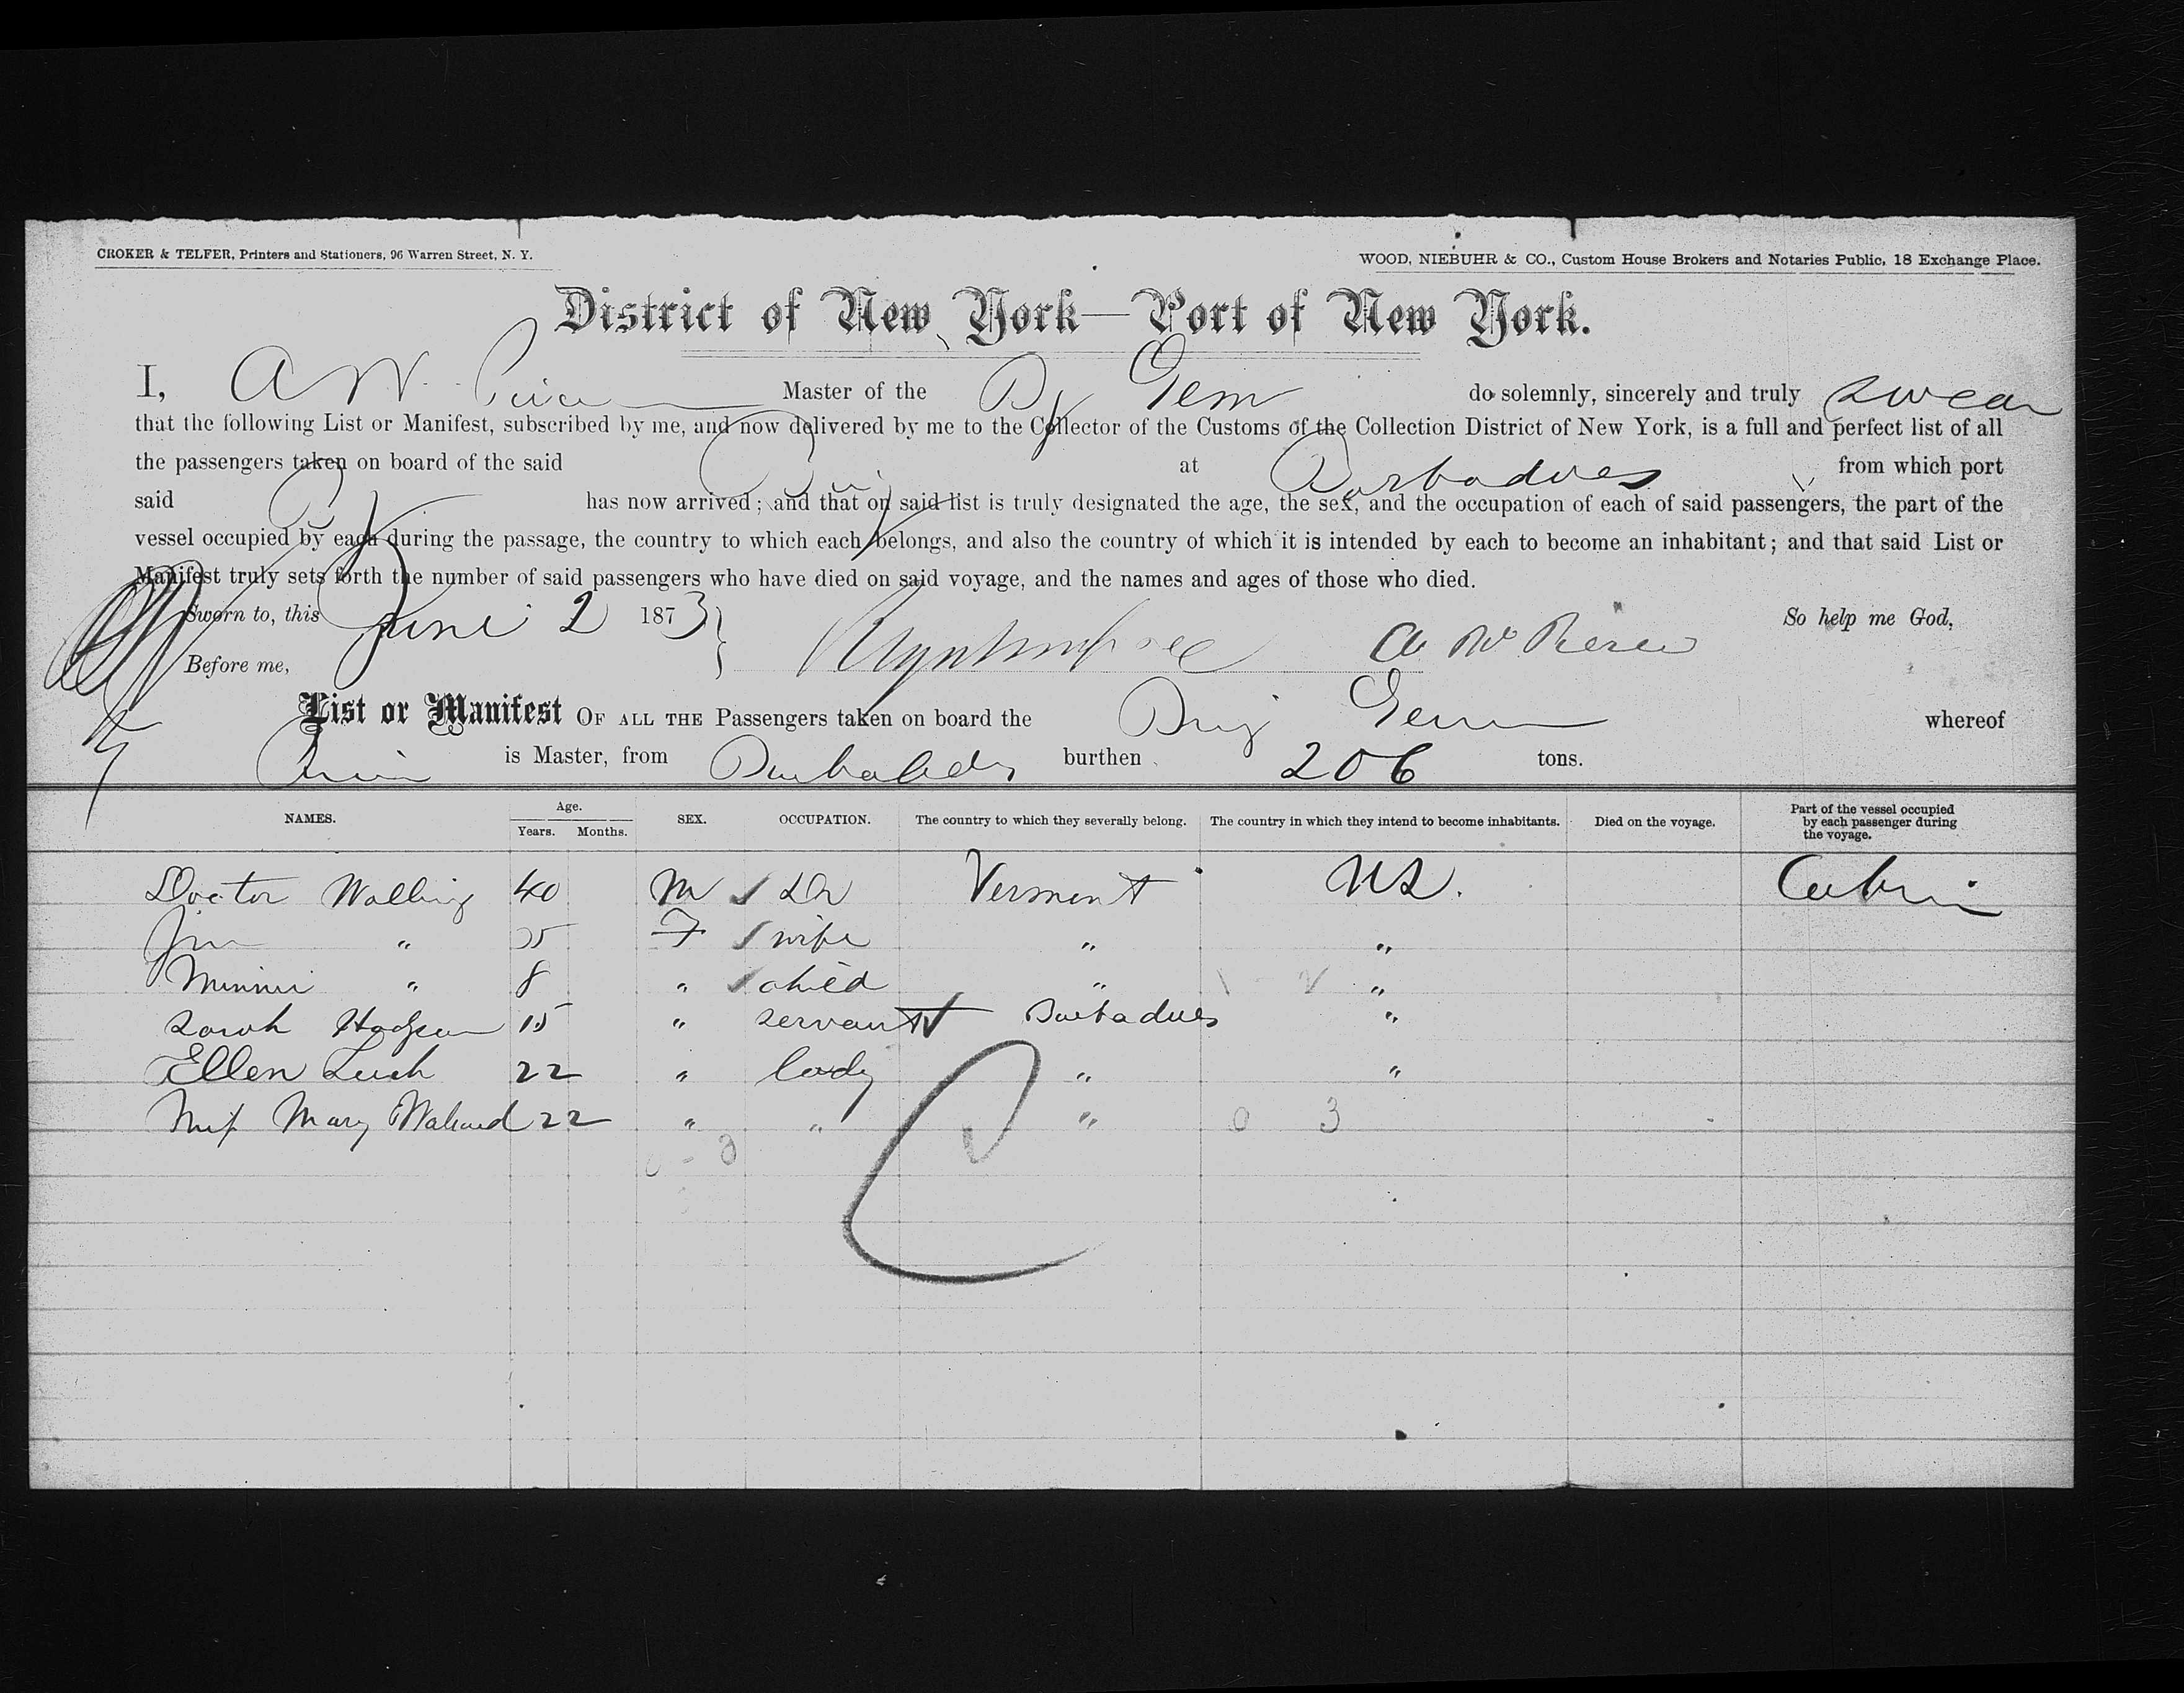 CROKER & TELFER, Printers and Stationers, 96 Warren Street, N. Y.
WOOD, NIEBUHR & CO., Custom House Brokers and Notaries Public, 18 Exchange Place.
District of New York—Port of New York.
I, A W Master of the Bg Gem do solemnly, sincerely and truly swear
that the following List or Manifest, subscribed by me, and now delivered by me to the Collector of the Customs of the Collection District of New York, is a full and perfect list of all
the passengers taken on board of the said Brig at Barbadoes from which port
said Brig has now arrived; and that on said list is truly designated the age, the sex, and the occupation of each of said passengers, the part of the
vessel occupied by each during the passage, the country to which each belongs, and also the country of which it is intended by each to become an inhabitant; and that said List or
Manifest truly sets forth the number of said passengers who have died on said voyage, and the names and ages of those who died.
Sworn to, this June 2 1873 So help me God,
Before me, A W
List or Manifest OF ALL THE Passengers taken on board the Brig Gem whereof
is Master, from Barbadoes burthen 206 tons.
NAMES. Age. Years. Months. SEX. OCCUPATION. The country to which they severally belong. The country in which they intend to become inhabitants. Died on the voyage. Part of the vessel occupied by each passenger during the voyage.
Doctor Walling 40 M Dr Vermont U S. Cabin
" F wife " "
Minnie " 8 " child " "
Sarah Hodgson 15 " servant Barbadoes "
Ellen 22 " lady " "
Miss Mary 22 " " " 0 3